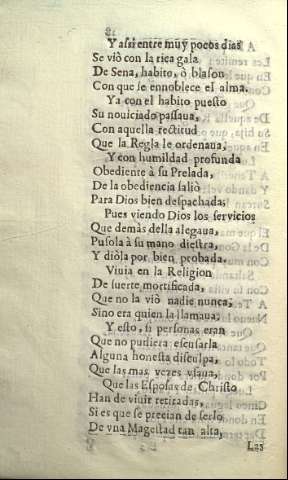 Y assi entre muy pocos dias
Se viò con la rica gala
De Sena, habito, ò blason
Con que se ennoblece el alma.
Ya con el habito puesto
Su nouiciado passaua,
Con aquella rectitud
Que la Regla le ordenaua;
Y con humildad profunda
Obediente à su Prelada,
De la obediencia saliò
Para Dios bien despachada;
Pues viendo Dios los servicios
Que demàs della alegaua,
Pusola à su mano diestra,
Y diòla por bien probada.
Viuia en la Religion
De suerte mortificada,
Que no la viò nadie nunca,
Sino era quien la llamaua;
Y esto, si personas eran
Que no pudiera escusarla
Alguna honesta disculpa,
Que las mas vezes vsaua,
Que las Esposas de Christo
Han de viuir retiradas,
Si es que se precian de serlo
De vna Magestad tan alta,
Las